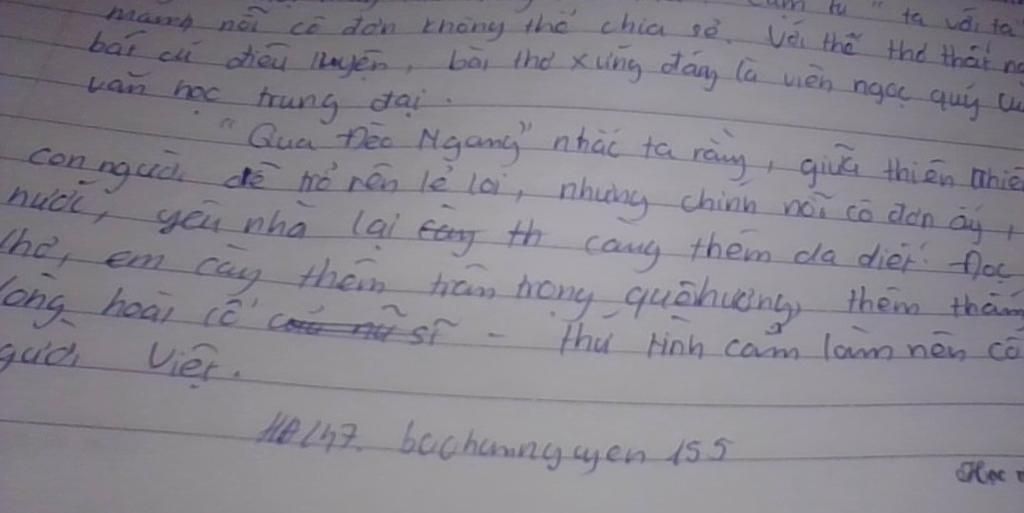 cụm từ "ta với ta
mang nỗi cô đơn không thể chia sẻ. Với thể thơ thất ng
bát cú điêu luyện, bài thơ xứng đáng là viên ngọc quý củ
văn học trung đại.
"Qua Đèo Ngang" nhắc ta rằng, giữa thiên nhiê
con người dễ trở nên lẻ loi, nhưng chính nỗi cô đơn ấy,
nước, yêu nhà lại càng th càng thêm da diết. Đọc
thơ, em càng thêm trân trọng quê hương, thêm thấm
lòng hoài cổ sĩ - thứ tình cảm làm nên cô
người Việt.
bachungnguyen 155
Học